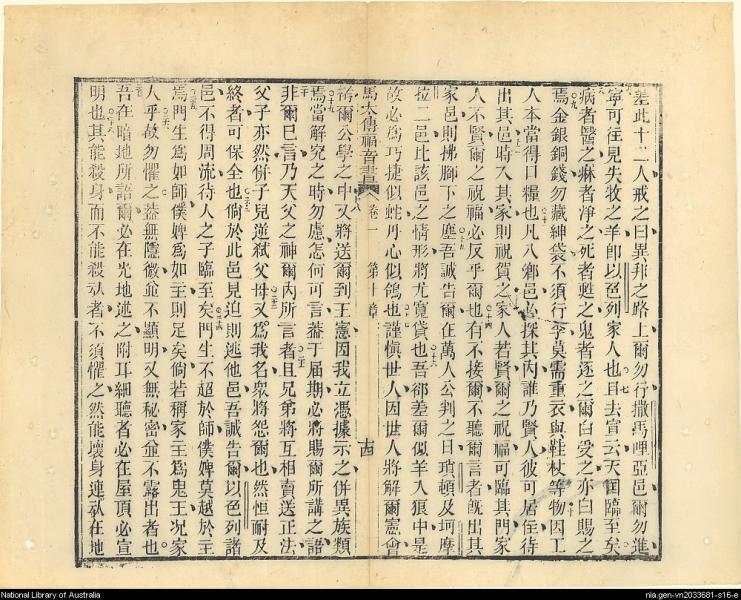 差此十二人戒之曰異邦之路上爾勿行撒馬哩亞邑爾勿進
寧可往見失牧之羊卽以色列家人也且去宣云天國臨至矣
病者醫之痳者淨之死者甦之鬼者逐之爾白受之亦白賜之
焉金銀銅錢勿藏紳袋不須行李莫需重衣與鞋杖等物因工
人本當得口糧也凡入鄉邑必探其內誰乃賢人彼可居住待
出其邑時入其家則祝賀之家人若賢爾之祝福可臨其門家
人不賢爾之祝福必反乎爾也有不接爾不聽爾言者旣出其
家邑則拂腳下之塵吾誠告爾在萬人公判之日瑣頓及坷摩
拉二邑比該邑之情形將尤寬貸也吾郤差爾似羊入狼中是
故必爲巧捷似蛇丹心似鴿也謹愼世人因世人將解爾憲會
馬太傳福音書 卷一 第十章 十四
笞爾公學之中又將送爾到王憲因我立憑據示之併異族類
焉當解究之時勿慮怎何可言葢于届期必將賜爾所講之語
非爾巳言乃天父之神爾內所言者且兄弟將互相賣送正法
父子亦然併子兒逆弑父母又爲我名衆將怨爾也然恒耐及
終者可保全也倘於此邑見迫則逃他邑吾誠告爾以色列諸
邑不得周流待人之子臨至矣門生不超於師僕婢莫越於主
爲門生爲如師僕婢爲如主則足矣倘若稱家主爲鬼王况家
人乎故勿懼之葢無隱微㑹不顯明又無秘密㑹不露出者也
吾在暗地所語爾必在光地述之附耳細聽者必在屋頂必宣
明也其能殺身而不能殺灵者不須懼之然能壞身連灵在地
National Library of Australia
nla.gen-vn2033681-s16-e